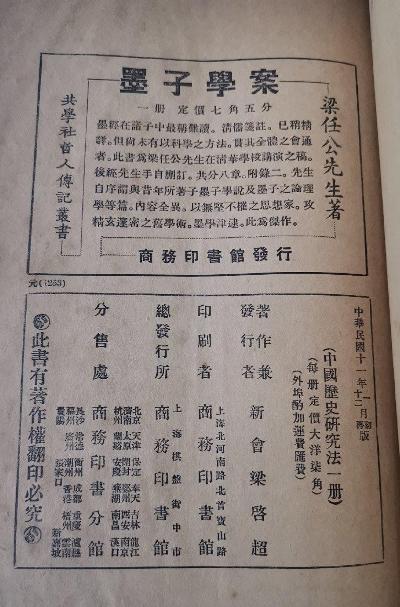 墨子學案
一册 定價七角五分
梁任公先生著
共學社哲人傳記叢書
墨經在諸子中最稱難讀。清儒箋註。已稍精
譯。但尚未有以科學之方法。貫其全體之會通
者。此書爲梁任公先生在清華學校講演之稿。
後經先生手自删訂。共分八章。附錄二。先生
自序謂與昔年所著子墨子學說及墨子之論理
學等篇。內容全異。以無堅不摧之思想家。攻
精玄邃密之舊學術。墨學津逮。此爲傑作。
商務印書館發行
元(1253)
中華民國十一年一月初版
(中國歷史研究法一册)
(每册定價大洋柒角)
(外埠酌加運費匯費)
著作兼發行者 新會梁啓超
印刷者 上海北河南路北首寶山路 商務印書館
總發行所 上海棋盤街中市 商務印書館
分售處 商務印書分館
北京 天津 保定 奉天 吉林 龍江
濟南 太原 開封 鄭州 西安 南京
杭州 蘭谿 安慶 蕪湖 南昌 漢口
長沙 常德 衡州 成都 重慶 瀘縣
福州 廣州 潮州 香港 梧州 雲南
貴陽 張家口 新嘉坡
此書有著作權翻印必究